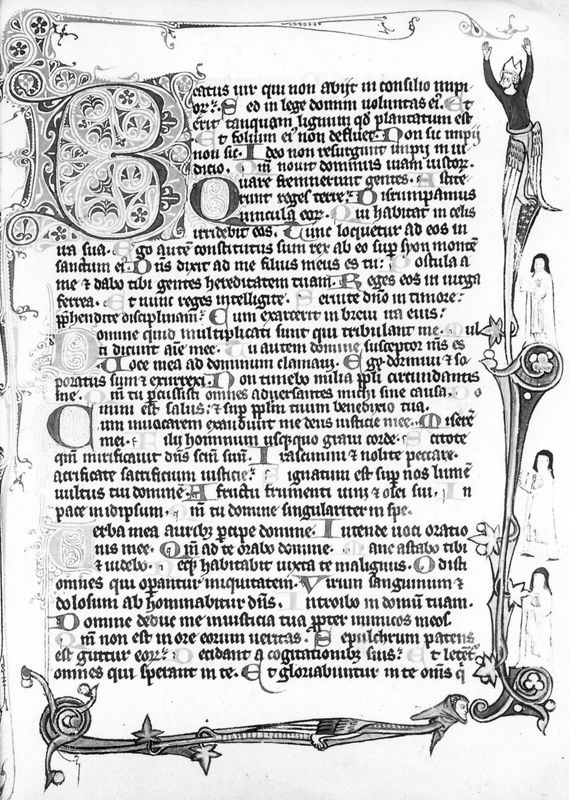 Beatus uir qui non abijt in consilio impi
or? Sed in lege domini uoluntas ei. Et
erit tanquam lignum qd plantatum est
Et folium ei non defluet. Non sic impij
non sic. Ideo non resurgunt impij in iu
dicio. Qm nouit dominus uiam iustor.
Quare fremuerunt gentes. Astite
runt reges terre. Disrumpamus
uincula eor. Qui habitat in celis
irridebit eos. Tunc loquetur ad eos in
ira sua. Ego autē constitutus sum rex ab eo sup syon montē
sanctum ei. Dn̄s dixit ad me filius meus es tu. Postula a
me & dabo tibi gentes hereditatem tuam. Reges eos in uirga
ferrea. Et nunc reges intelligite. Seruite dn̄o in timore?
Apphendite disciplinam? Cum exarcerit in breui ira eius?
Domine quid multiplicati sunt qui tribulant me. Mul
ti dicunt aīe mee. Tu autem domine susceptor m̄s es
Uoce mea ad dominum clamaui. Ego dormiui & so
poratus sum & exurrexi. Non timebo milia ppli circundantis
me. Qm tu pcussisti omnes aduersantes michi sine causa. Do
mini est salus? & sup pplm tuum benedixio tua.
Cum inuocarem exaudiuit me deus iusticie mee. Miserē
mei. Filij hominum usqquo graui corde. Scitote
qm mirificauit dn̄s scm̄ suū. Irascimini & nolite peccare.
Sacrificate sacrificium iusticie? Signatum est sup nos lumē
uultus tui domine. A fructu frumenti uini & olei sui. In
pace in idipsum. Qm tu domine singulariter in spe.
Uerba mea auribz pcipe domine. Intende uoci oratio
nis mee. Qm ad te orabo domine. Mane astabo tibi
& uidebo. Necqz habitabit iuxta te malignus. Odisti
omnes qui opantur iniquitatem. Virum sanguinum &
dolosum abhominabitur dn̄s. Introibo in domū tuam.
Domine deduc me in iusticia tua ppter inimicos meos.
Qm non est in ore eorum ueritas. Sepulchrum patens
est guttur eor? Decidant a cogitationibz suis? Et letēt
omnes qui sperant in te. Et gloriabuntur in te om̄s q